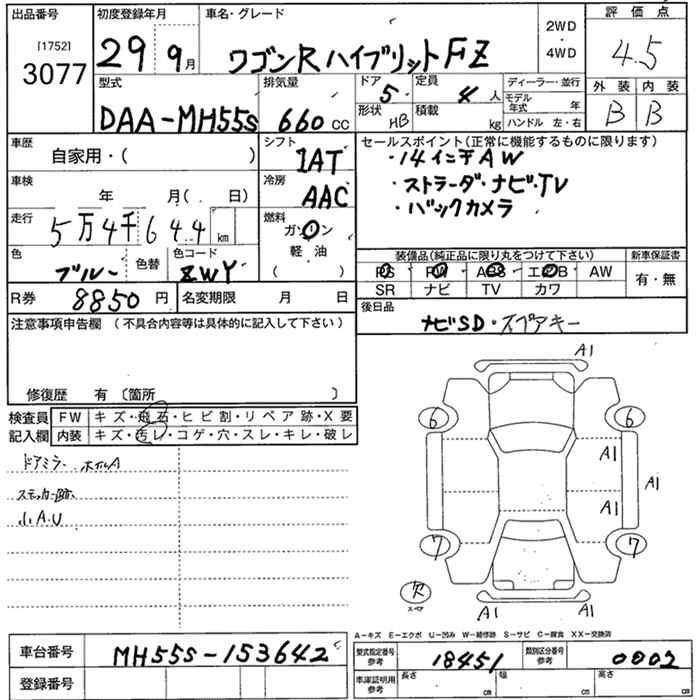 出品番号
[1752]
3077
初度登録年月
29 9月
車名・グレード
ワゴンR ハイブリット FZ
2WD
4WD
評価点
4.5
型式
DAA-MH55S
排気量
660 CC
ドア
5
定員
4人
形状
HB
積載
kg
ディーラー・並行
モデル年式 年
ハンドル 左・右
外装 内装
B B
車歴
自家用・( )
車検
年 月( . 日)
走行
5万4千644 km
色
ブルー
色替
色コード
ZWY
シフト
IAT
冷房
AAC
燃料
ガソリン
軽油
( )
セールスポイント(正常に機能するものに限ります)
・14インチAW
・ストラーダ・ナビ・TV
・バックカメラ
装備品(純正品に限り丸をつけて下さい)
PS PW ABS エアB AW
SR ナビ TV カワ
新車保証書
有・無
R券 8850円
名変期限 月 日
後日品
ナビSD・スペアキー
注意事項申告欄 (不具合内容等は具体的に記入して下さい)
修復歴 有 〔箇所 〕
検査員記入欄
FW キズ・飛石・ヒビ割・リペア跡・X要
内装 キズ・汚レ・コゲ・穴・スレ・キレ・破レ
ドアミラー ホイルA
ステッカー跡
小A.U
A1
6 6
A1
A1
A1
7 7
欠
スペア
A1 A1
A-キズ E-エクボ U-凹み W-補修跡 S-サビ C-腐食 XX-交換済
車台番号
MH55S-153642
登録番号
型式指定番号 参考
18451
類別区分番号 参考
0002
車庫証明用 参考
長さ cm
幅 cm
高さ cm